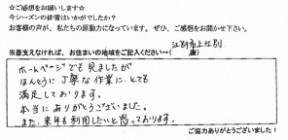 ☆ご感想をお願いします☆
今シーズンの除雪はいかがでしたか?
お客様の声が、私たちの原動力になっています。ぜひ、ご感想をお聞かせ下さい。
※差支えなければ、お住まいの地域をご記入ください→(江別市上江別 歳)
ホームページでも見ましたが
ほんとうに丁寧な作業に、とても
満足しております。
本当にありがとうございました。
また、来年も利用したいと思っております。
ご協力ありがとうございました!